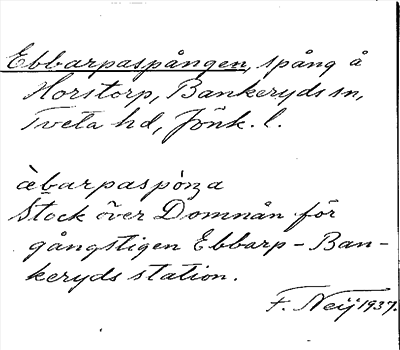 Ebbarpaspången, spång å
Horstorp, Bankeryds sn,
Tveta hd, Jönk. l.
æ̀barpaspóŋa
Stock över Domnån för
gångstigen Ebbarp - Ban-
keryds station.
F. Neij 1937.